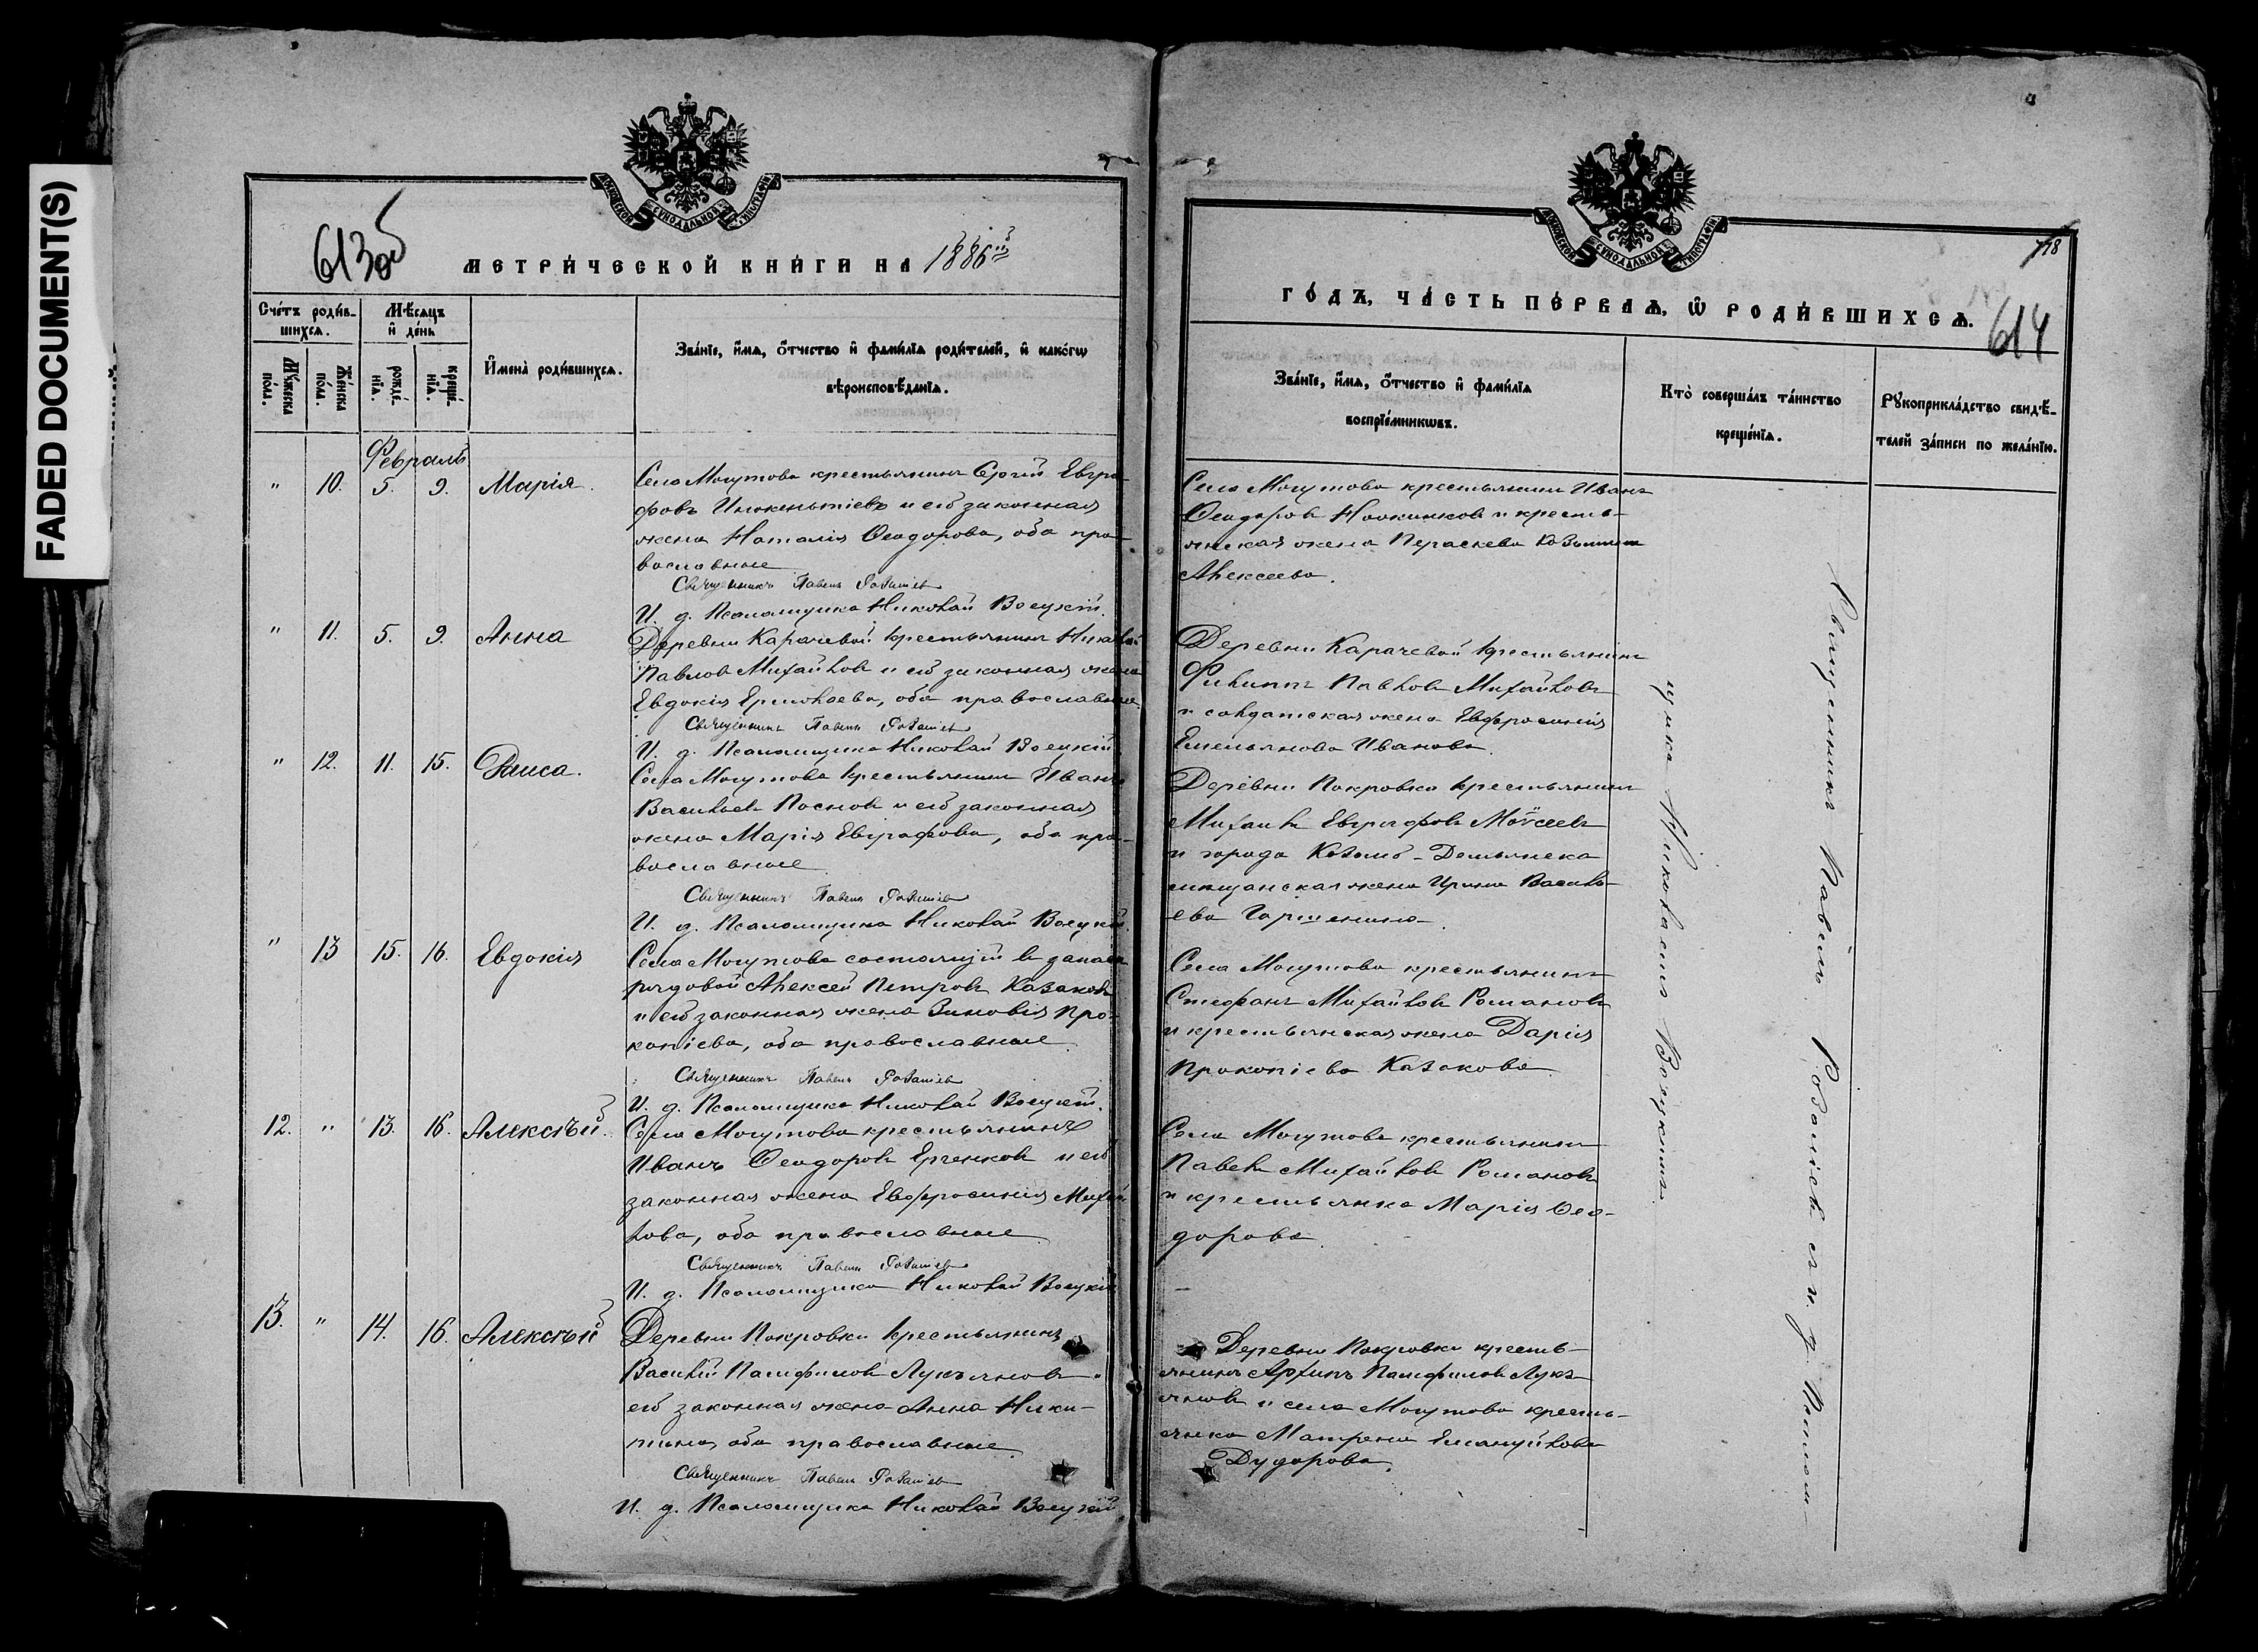 FADED DOCUMENT(S)
613об
МОСКОВСКОЙ СѴНОДАЛЬНОЙ ТИПОГРАФІИ
МЕТРИ́ЧЕСКОЙ КНИ́ГИ НА 1886й
Сче́тъ роди́в-
шихсѧ.
Мѣ́сѧцъ
и҆ де́нь
Мꙋ́жеска по́ла.
Же́нска по́ла.
рожде́-
нїѧ.
креще́-
нїѧ.
И҆мена̀ роди́вшихсѧ.
Зва́нїе, и҆́мѧ, ѻ҆́тчество и҆ фами́лїѧ роди́телей, и҆ како́гѡ
вѣроисповѣ́данїѧ.
Февраль
" 10. 5. 9. Марія.
Села Могутова крестьянинъ Сергій Евгра-
фовъ Инокентіевъ и его законная
жена Наталія Ѳеодорова, оба пра-
вославные
Священникъ Павелъ
И. д. Псаломщика Николай Воецкій.
" 11. 5. 9. Анна
Деревни Карачевой крестьянинъ Николай
Павловъ Михайловъ и его законная жена
Евдокія Ермолаева, оба православные.
Священникъ Павелъ
И. д. Псаломщика Николай Воецкій
" 12. 11. 15. Раиса.
Села Могутова крестьянинъ Иванъ
Васильевъ Посновъ и его законная
жена Марія Евграфова, оба пра-
вославные
Священникъ Павелъ
И. д. Псаломщика Николай Воецкій.
" 13 15. 16. Евдокія
Села Могутова состоящій въ запасѣ
рядовой Алексей Петровъ Казаковъ
и его законная жена Зиновія Про-
копіева, оба православные
Священникъ Павелъ
И. д. Псаломщика Николай Воецкій.
12. " 13. 16. Алексѣй.
Села Могутова крестьянинъ
Иванъ Ѳеодоровъ и его
законная жена Евфросинія Михай-
лова, оба православные
Священникъ Павелъ
И. д. Псаломщика Николай Воецкій
13. " 14. 16. Алексѣй
Деревни Покровки крестьянинъ
Василій Памфиловъ Лукъяновъ и
его законная жена Анна Ники-
тина, оба православные
Священникъ Павелъ
И. д. Псаломщика Николай Воецкій
МОСКОВСКОЙ СѴНОДАЛЬНОЙ ТИПОГРАФІИ
ГО́ДЪ, ЧА́СТЬ ПЕ́РВАѦ, Ѡ҆ РОДИ́ВШИХСѦ.
614
Зва́нїе, и҆́мѧ, ѻ҆́тчество и҆ фами́лїѧ
воспрїе́мникѡвъ.
Кто̀ соверша́лъ та́инство
креще́нїѧ.
Рꙋкоприкла́дство свидѣ́-
телей за́писи по жела́нїю.
Села Могутова крестьянинъ Иванъ
Ѳеодоровъ и кресть-
янская жена Параскева
Алексеева.
Деревни Карачевой крестьянинъ
Филиппъ Павловъ Михайловъ
и солдатская жена Евфросинія
Емельянова Иванова.
Деревни Покровки крестьянинъ
Михаилъ Евграфовъ Моѵсеевъ
и города Козьмо-Демьянска
мещанская жена Ирина Василь-
ева Гаршенина.
Села Могутова крестьянинъ
Стефанъ Михайловъ Романовъ
и крестьянская жена Дарія
Прокопіева Казакова
Села Могутова крестьянинъ
Павелъ Михайловъ Романовъ
и крестьянка Марія Ѳео-
дорова.
Деревни Покровки кресть-
янинъ Архипъ Памфиловъ Лукъ-
яновъ и села Могутова кресть-
янка Матрена Емануйлова
Дударова.
Священникъ Павелъ съ и. д. Псалом-
щика Николаемъ Воецкимъ.